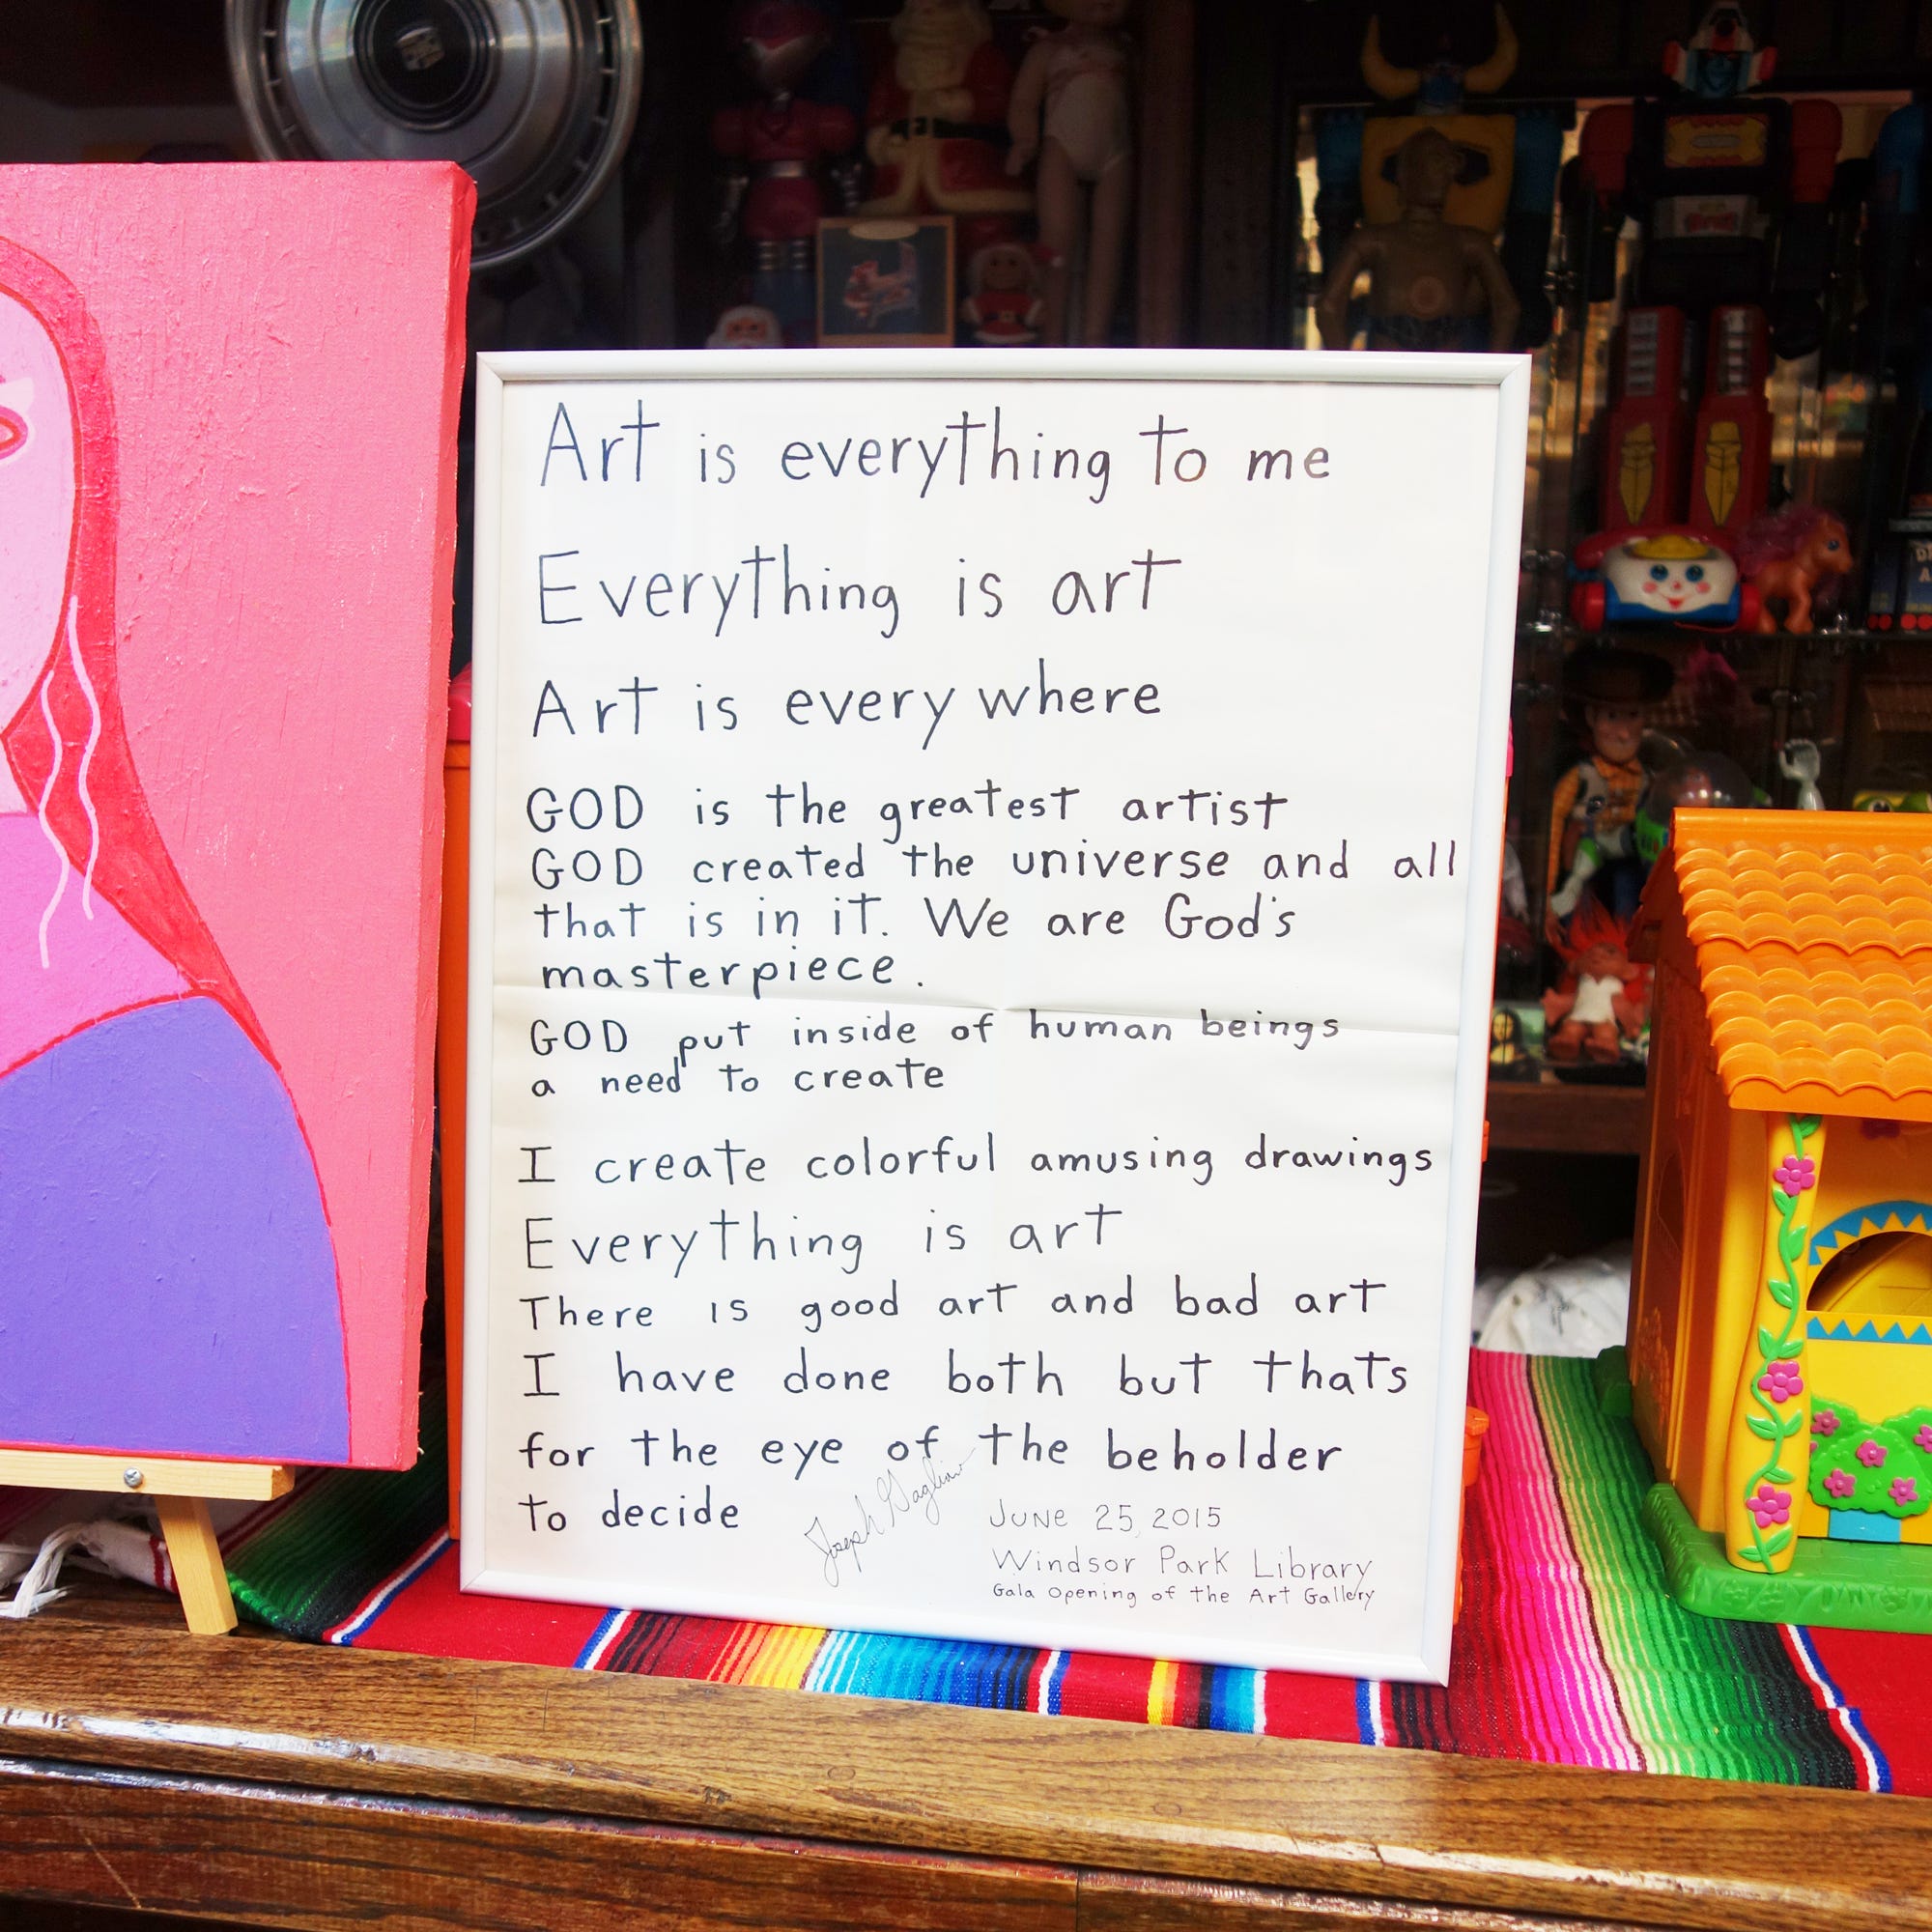 Art is everything to me
Everything is art
Art is everywhere
GOD is the greatest artist
GOD created the universe and all
that is in it. We are God's
masterpiece.
GOD put inside of human beings
a need to create
I create colorful amusing drawings
Everything is art
There is good art and bad art
I have done both but thats
for the eye of the beholder
to decide
Joseph
June 25, 2015
Windsor Park Library
Gala Opening of the Art Gallery